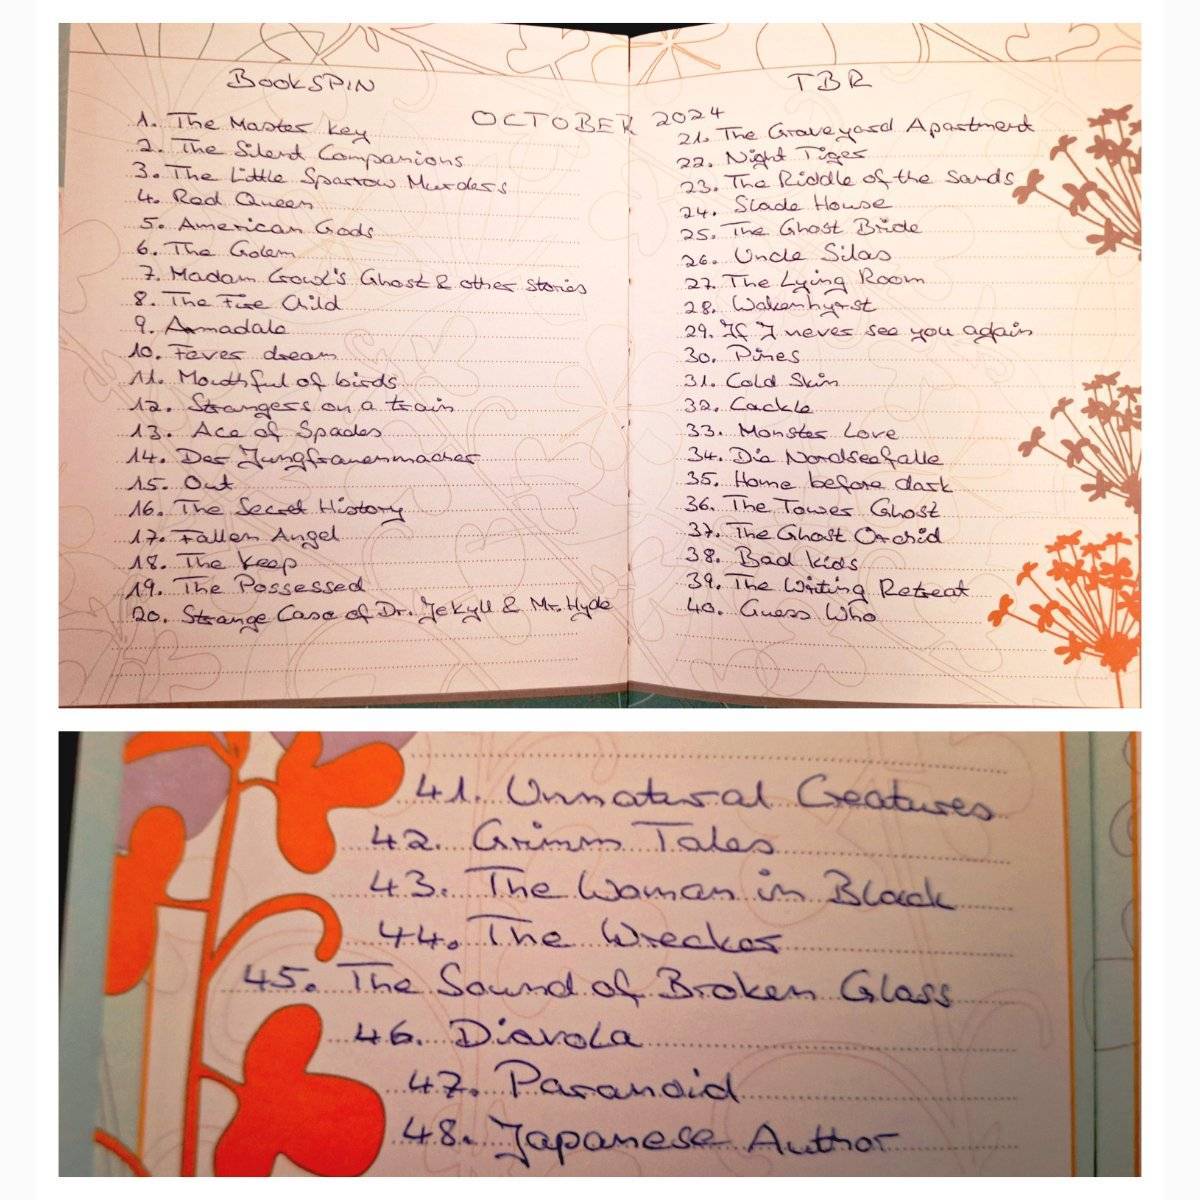 BookSPIN
OCTOBER
1. The Master Key
2. The Silent Companions
3. The Little Sparrow Murders
4. Red Queen
5. American Gods
6. The Golem
7. Madam Crowl's Ghost & other stories
8. The Fire Child
9. Armadale
10. Fever dream
11. Mouthful of birds
12. Strangers on a train
13. Ace of Spades
14. Der Jungfrauenmacher
15. Out
16. The Secret History
17. Fallen Angel
18. The Keep
19. The Possessed
20. Strange Case of Dr. Jekyll & Mr. Hyde
TBR
2024
21. The Graveyard Apartment
22. Night Tiger
23. The Riddle of the Sands
24. Slade House
25. The Ghost Bride
26. Uncle Silas
27. The Lying Room
28. Wakenhyrst
29. If I never see you again
30. Pines
31. Cold Skin
32. Cackle
33. Monster Love
34. Die Nordseefalle
35. Home before dark
36. The Tower Ghost
37. The Ghost Orchid
38. Bad kids
39. The Writing Retreat
40. Guess Who
41. Unnatural Creatures
42. Grimm Tales
43. The Woman in Black
44. The Wrecker
45. The Sound of Broken Glass
46. Diavola
47. Paranoid
48. Japanese Author